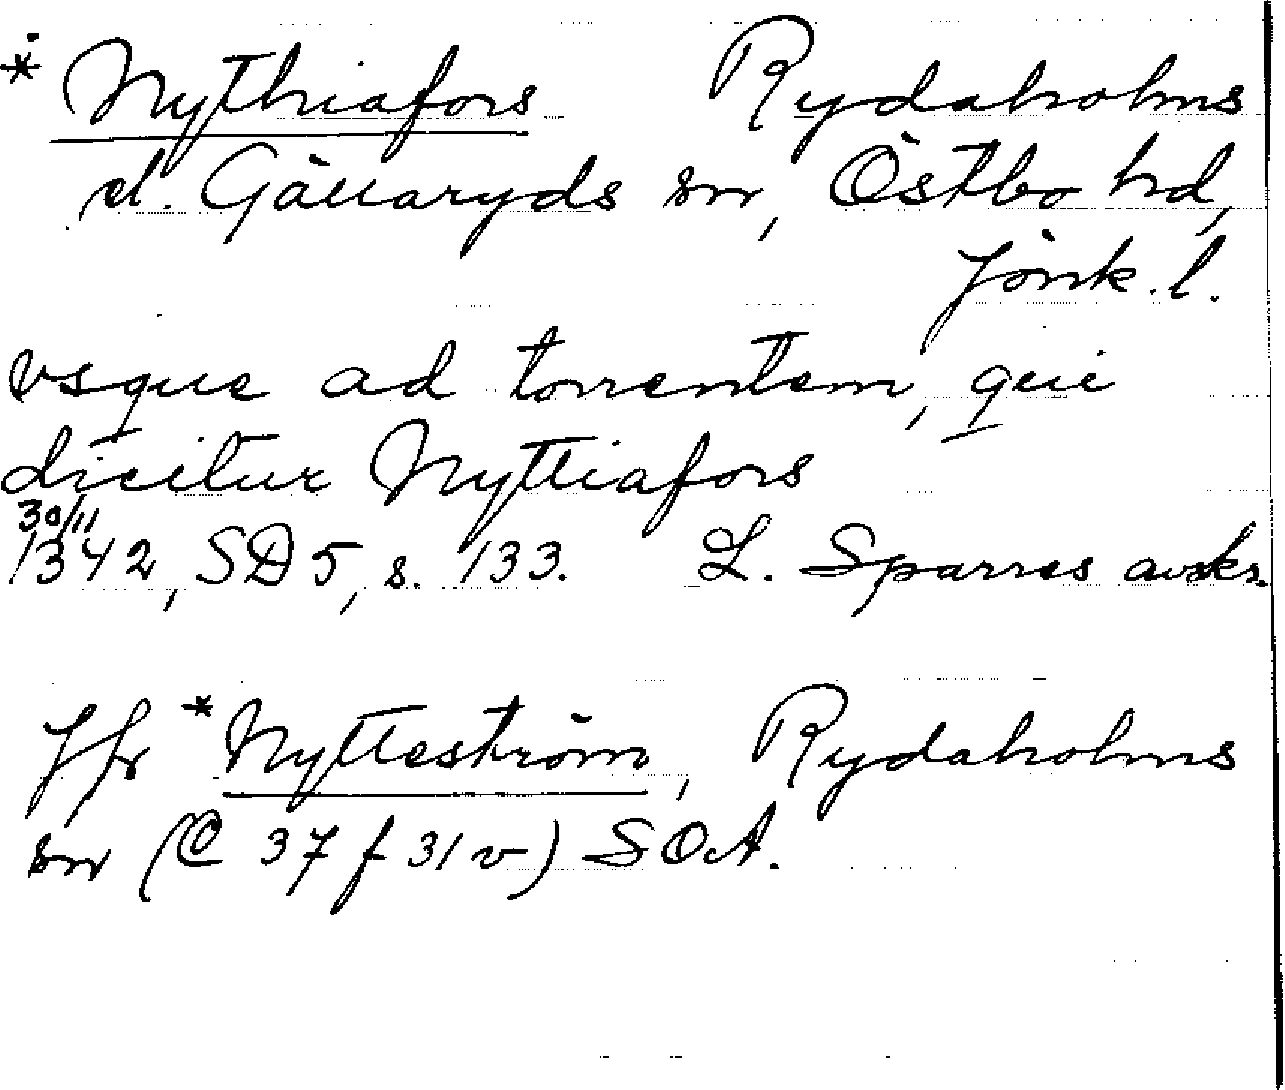 * Nythiafors Rydaholms
el. Gällaryds sn, Östbo hd,
Jönk. l.
vsque ad torrentem, qui
dicitur Nyttiafors
30/11
1342, SD 5, s. 133. L. Sparres avskr.
Jfr *Nytteström, Rydaholms
sn (C 37 f 31 v) SOA.